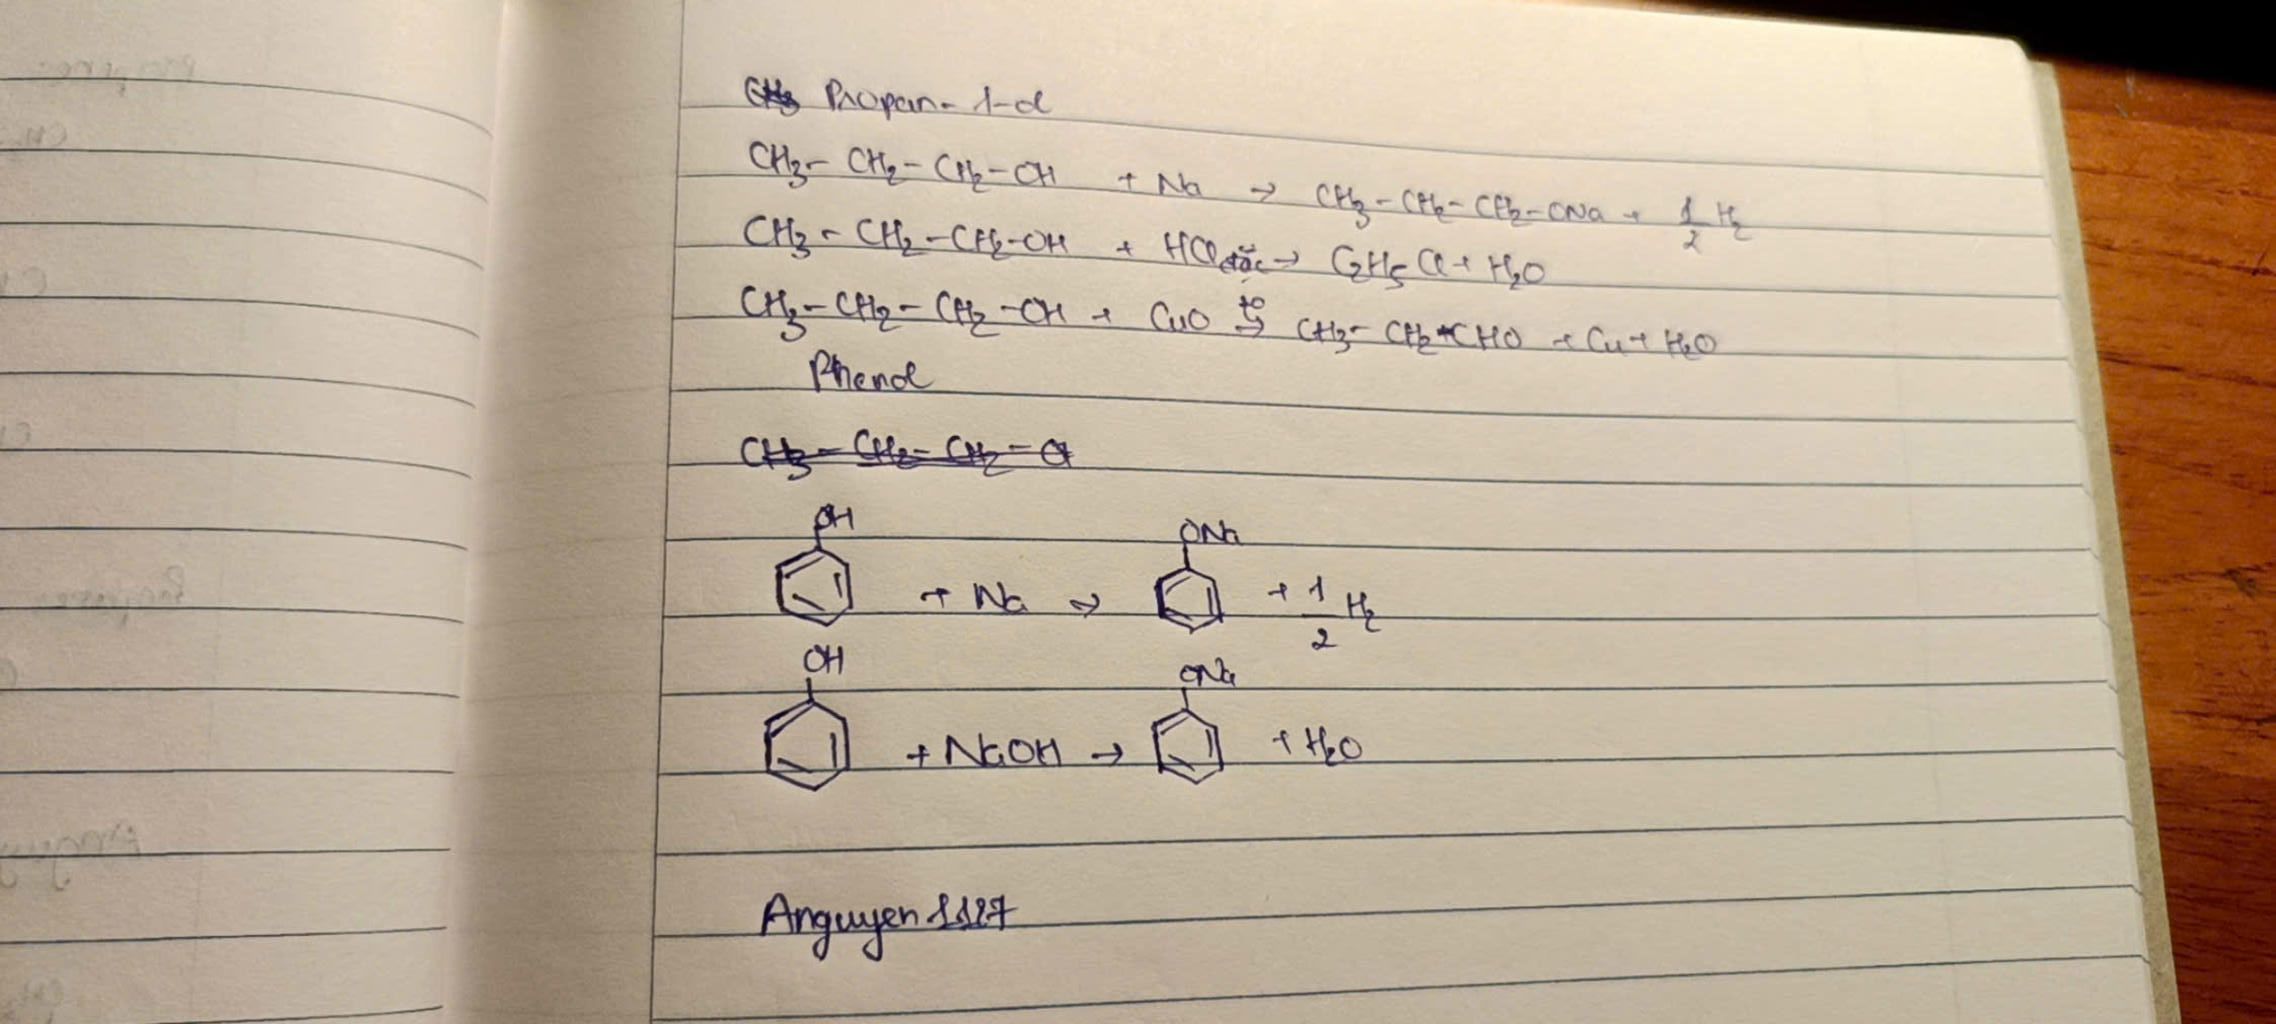 Propan-1-ol
CH₃ - CH₂ - CH₂ - OH + Na → CH₃ - CH₂ - CH₂ - ONa + 1/2 H₂
CH₃ - CH₂ - CH₂ - OH + HCl đặc → C₂H₅Cl + H₂O
CH₃ - CH₂ - CH₂ - OH + CuO t° → CH₃ - CH₂ - CHO + Cu + H₂O
Phenol
OH + Na → ONa + 1/2 H₂
OH + NaOH → ONa + H₂O
Anguyen1127